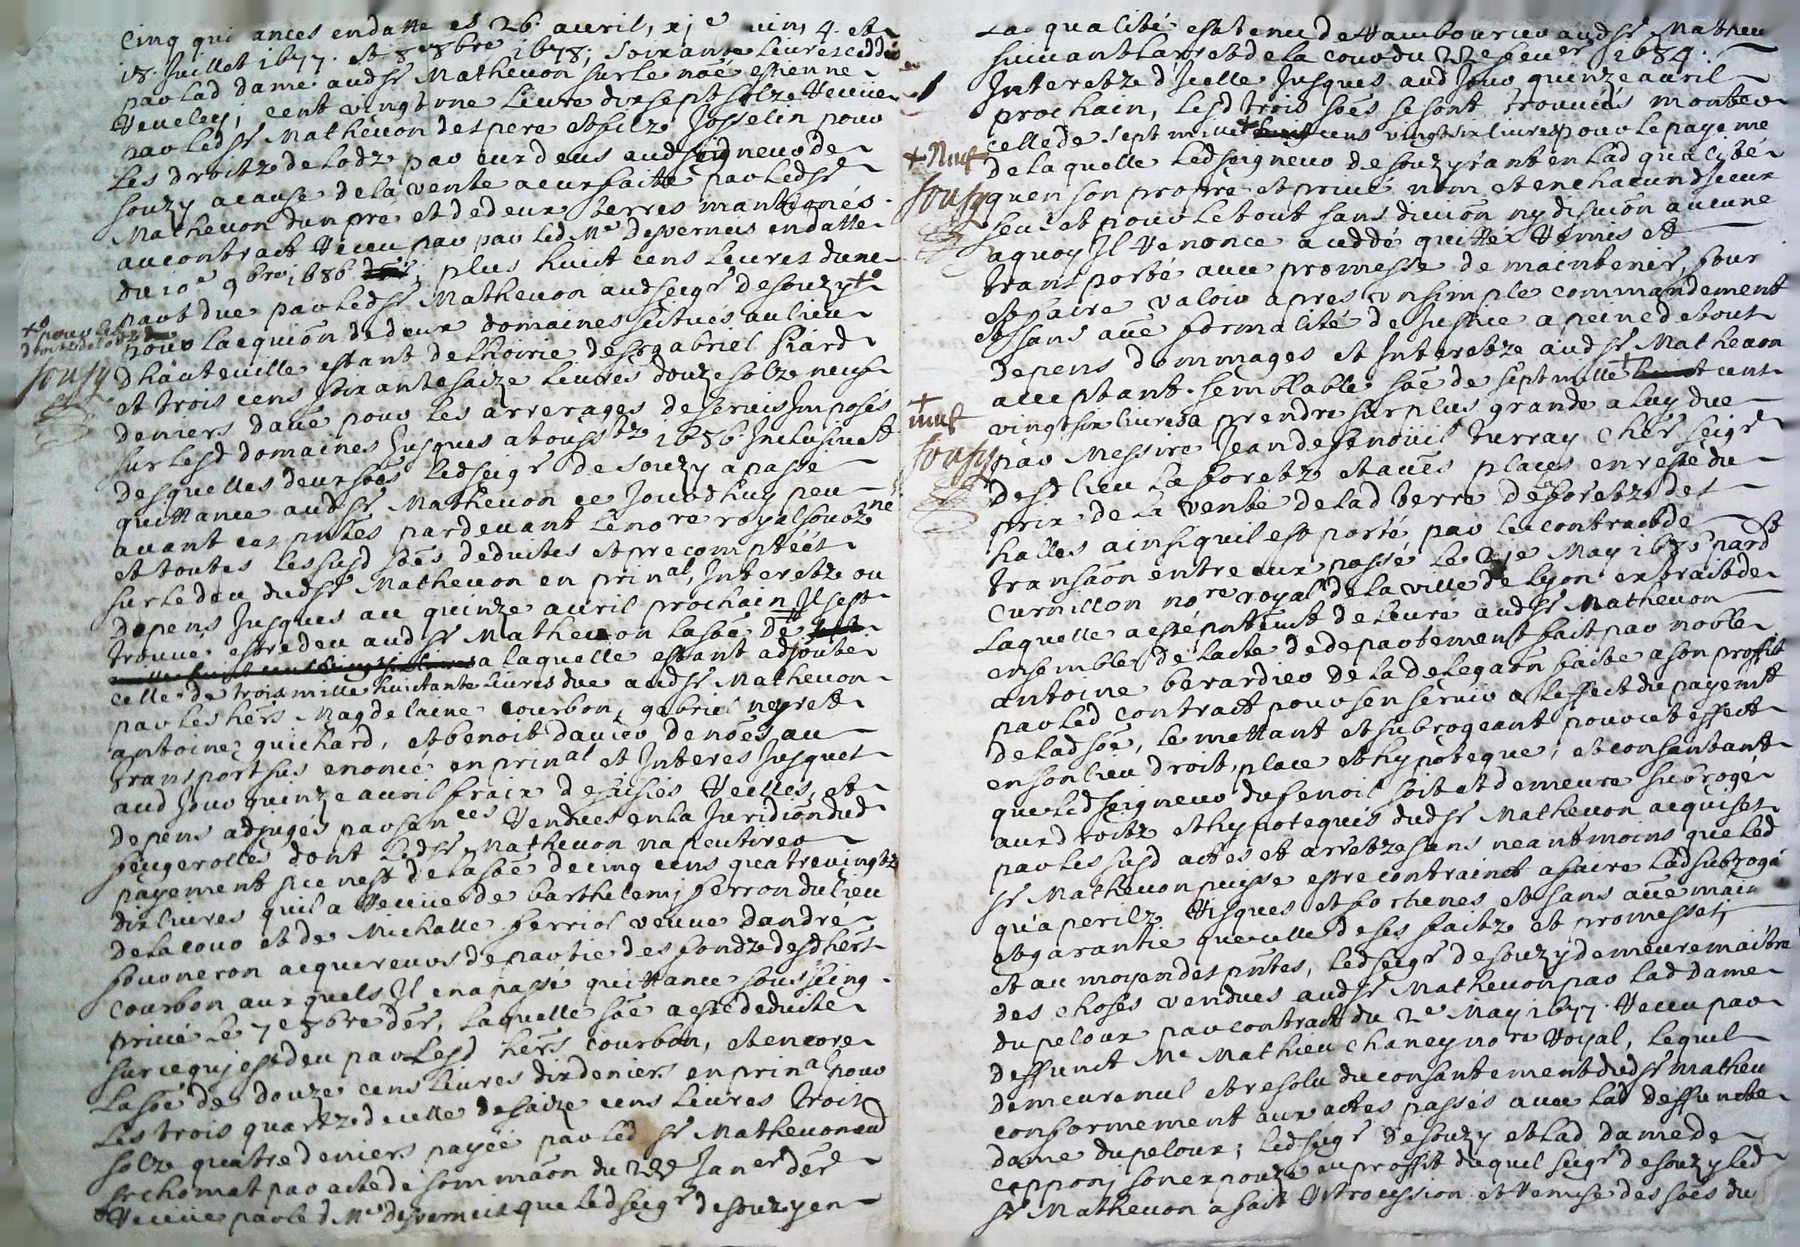 cinq quictances en datte es 26 avril, xj e juin, 4 et
18 Juillet 1677 et 8 8bre 1678, soixante livres ceddés
par lad dame aud Sr Matheuon sur le noé estienne
Reveley, cent vingt une livre dix sept solz Receue
par led Sr Matheuon des pere et filz Josselin pour
les droitz de lodz par eux deus aud seigneur de
souzy a cause de la vente a eux faitte par led Sr
Matheuon dun pre et de deux terres mantionés
au contract Receu par led Me Desverneis en datte
du 10e 9bre 1686; plus huict cens livres dune
part due par led Sr Matheuon aud seigr de souzy +o
pour lacquion de deux domaines scitués au lieu
dhauteville estant de lhoirie de Sr gabriel Piard
et trois cens soixante saize livres douze solz neuf
deniers dautre pour les arrerages de servis Imposés
sur lesd domaines Jusques a toussts 1686 Inclusivet
desquelles deux soés led seigr de souzy a passé
quittance aud Sr Matheuon ce Jourdhuy peu
avant ces pntes pardevant le nore royal soubzné
et toutes les susd soés deduites et precomptéés
sur le deu dud Sr Matheuon en prinal, Interetze ou
depens Jusques au quinze avril prochain Il sest
trouvé estre deu aud Sr Matheuon la soé de
a laquelle estant adjoutée
celle de trois mille huictante livres due aud Sr Matheuon
par les hers Magdelaine Courbon, gabriel neyrett
antoine guichard, et benoit davier denoés au
transport sus enoncé en prinal et Interes Jusques
aud Jour quinze avril fraix de saisies Reelles, et
depens adjugés par sances Rendues en la Juridion dud
feugerolles dont led Sr Matheuon na peu tirer
payement si ce nest de la soé de cinq cens quatre vingtz
dix livres quil a Receue de barthelemy ferron du lieu
de la cour et de Michalle ferriol veuve dandré
souvneron acquereurs de partie des fondz desd hers
Courbon auxquels Il en a passé quittance sous seing
privé le 7e 8bre der, laquelle soé a esté deduite
sur ce quj est deu par lesd hers courbon, et encore
la soé de douze cens livres dix deniers en prinal pour
les trois quartz de celle de saize cens livres trois
solz quatre deniers payéé par led Sr Matheuon aud
Sr chomat par acte de sommaon du 22e Janer der
Receue par led Me Desverneis que led seigr de souzy en
+o pour les
droitz de lodz
Souzy
La qualité est tenu de Rambourcer aud Sr Matheuon
suivant larrest de la cour du 22e feuer 1684.
Interetze dIcelle Jusques aud Jour quinze avril
prochain, lesd trois soés se sont trouvéés monter
celle de sept mille + cens vingt six livres pour le payeme
de laquelle led seigneur de souzy tant en lad qualité
quen son propre et privé nom et en chacun dIceux
seul et pour le tout sans division ny discuion aucune
a quoy Il Renonce a ceddé quitté Remis et
transporté avec promesse de maintenir, four
et faire valoir apres un simple commandement
et sans aue formalité de Justice a peine de tout
depens dommages et Interetze aud Sr Matheuon
acceptant semblable soé de sept mille + cent
vingt six livres a prendre sur plus grande a luy due
par Messire Jean de fenoüil turray cher seigr
desd lieu la foretz et aues places en reste du
prix de la vente de lad terre de foretz des
halles ainsi quil est porté par le contract de
transaon entre eux passé le 21e May 1685 pardt
Curnillon nore royal de la ville de lyon extrait de
laquelle a esté pntemt deLivré aud Sr Matheuon
ensemble de lacte de departement fait par noble
antoine berardier de la delegaon faite a son proffit
par led contract pour sen servir a leffect du payemt
de lad soé, le mettant et subrogeant pour cet effect
en son lieu droit, place et hypoteque; et consantant
que led seigneur du fenoil soit et demeure subrogé
aux droitz et hypoteques dud Sr Matheuon acquises
par les susd actes et arretze sans neantmoins que led
Sr Matheuon puisse estre contrainct a faire lad subrogao
qua perilz Risques et fortunes et sans aue main
et garantie que celle de ses faitz et promesses;
et au moyen des pntes, led seigr de souzy demeure maitre
des choses vendues aud Sr Matheuon par lad dame
du peloux par contract du 2e May 1677 Receu par
deffunct Me Mathieu Chaney nore Royal, lequel
demeure nul et resolu du consantement dud Sr matheu
conformement aux actes passés avec lad deffuncte
dame du peloux; led seigr de souzy et lad dame de
capponj son expouze au proffit duquel seigr de souzy led
Sr Matheuon a fait Retrocession et Remise des soés du
+ Neuf
Souzy
+
neuf
Souzy